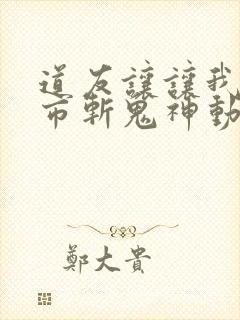 道友讓讓我
市斬鬼神動
鄭大貴